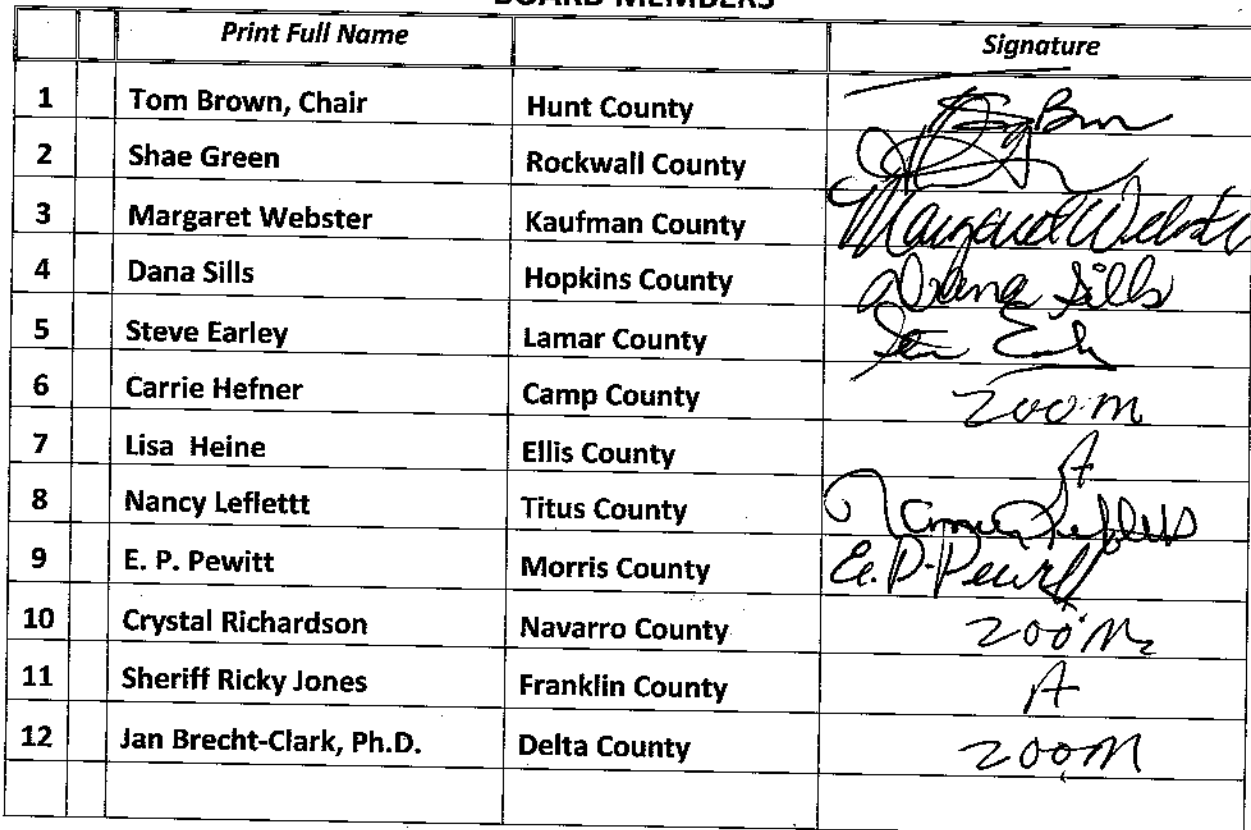 BOARD MEMBERS
Print Full Name Signature
1 Tom Brown, Chair Hunt County
2 Shae Green Rockwall County
3 Margaret Webster Kaufman County Margaret Webster
4 Dana Sills Hopkins County Dana Sills
5 Steve Earley Lamar County
6 Carrie Hefner Camp County Zoom
7 Lisa Heine Ellis County A
8 Nancy Leflettt Titus County
9 E. P. Pewitt Morris County E. P. Pewitt
10 Crystal Richardson Navarro County Zoom
11 Sheriff Ricky Jones Franklin County A
12 Jan Brecht-Clark, Ph.D. Delta County Zoom